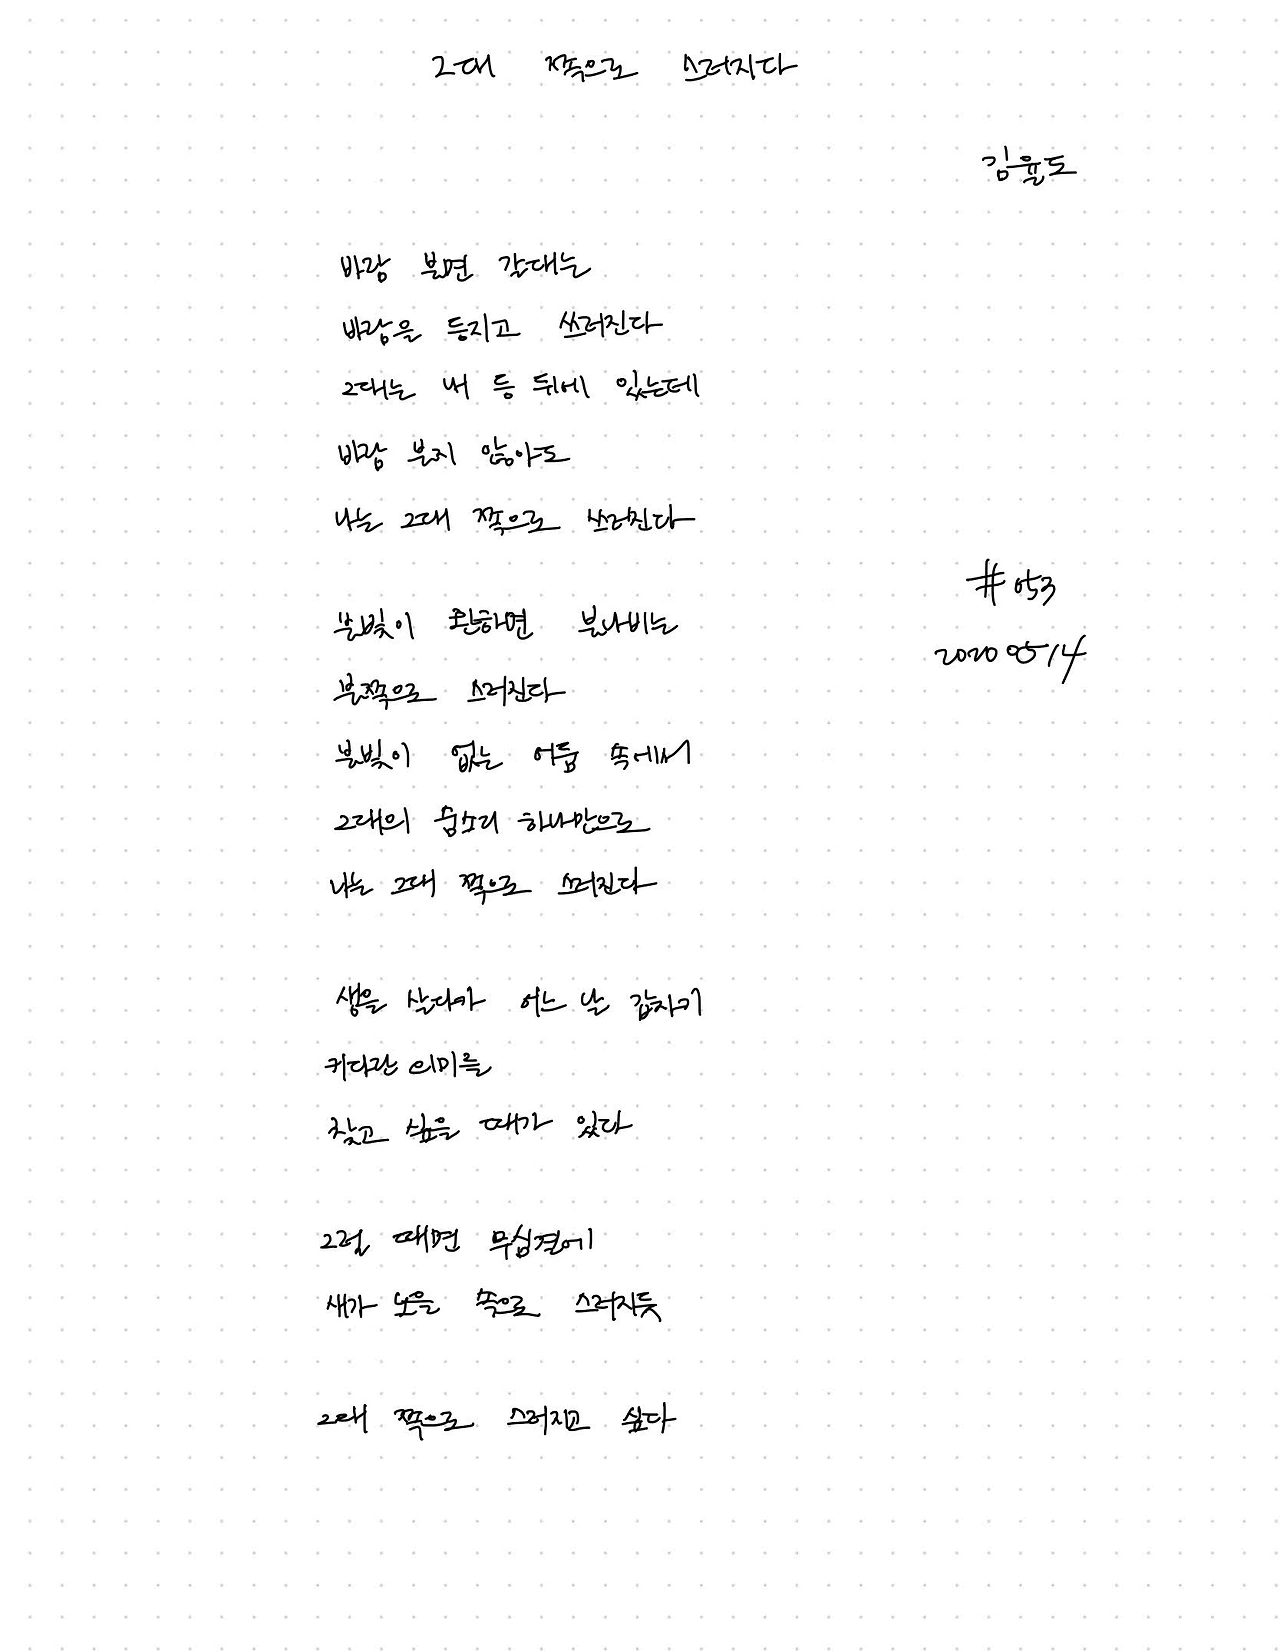 그대 쪽으로 스러지다
김윤도
바람 불면 갈대는
바람을 등지고 쓰러진다
그대는 내 등 뒤에 있는데
바람 불지 않아도
나는 그대 쪽으로 쓰러진다
불빛이 환하면 불나비는
불쪽으로 스러진다
#053
20200514
불빛이 없는 어둠 속에서
그대의 숨소리 하나만으로
나는 그대 쪽으로 스러진다
생을 살다가 어느 날 갑자기
커다란 의미를
찾고 싶을 때가 있다
그럴 때면 무심결에
새가 노을 속으로 스러지듯
그대 쪽으로 스러지고 싶다